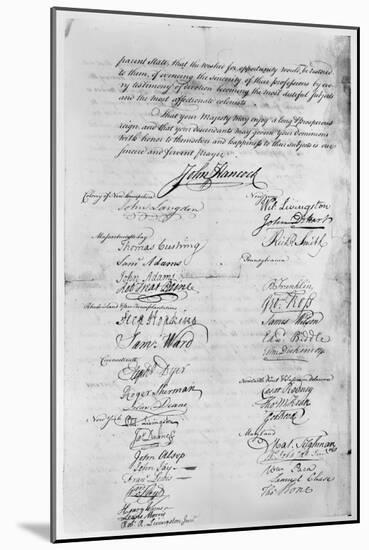 parent State, that we wish for opportunity
to them, of evincing the sincerity of their professions by eve
ry testimony of devotion becoming the most dutiful subjects
and the most affectionate colonists
That your Majesty may enjoy a long & prosperous
reign, and that your descendants may govern your Dominions
with honor to themselves and happiness to their subjects is our
sincere and fervent prayer
John Hancock
Colony of New hampshire
John Langdon
Massachusetts bay
Thomas Cushing
Saml Adams
John Adams
Rob Treat Paine
Rhode Island
Step Hopkins
Sam: Ward
Connecticut
Elipht Dyer
Roger Sherman
Silas Deane
New York
Phil Livingston
Jas Duane
John Alsop
John Jay
Frans Lewis
Wm Floyd
Lewis Morris
Rob. R. Livingston Junr
New
Wil: Livingston
John D Hart
Richd Smith
Pennsylvania
B Franklin
Geo: Ross
James Wilson
Edw Biddle
John Dickinson
Delaware
Caesar Rodney
Tho M:Kean
Geo Read
Maryland
Mat. Tilghman
Wm Paca
Samuel Chase
Thos Stone